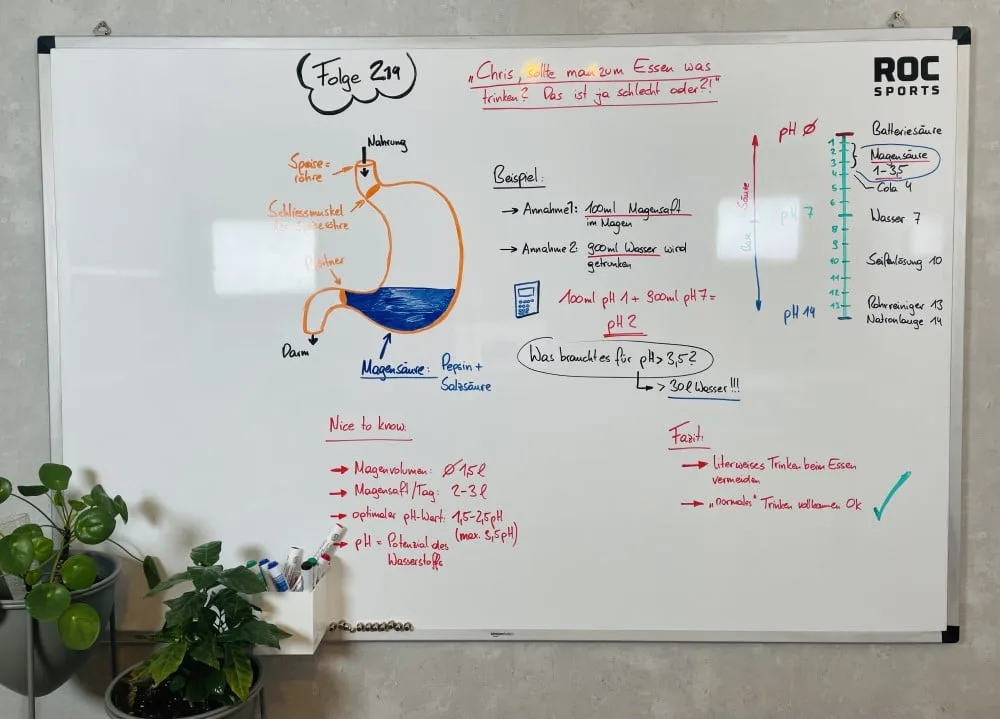 Folge 219
„Chris, sollte man zum Essen was
trinken? Das ist ja schlecht oder?!"
ROC
SPORTS
Nahrung
Speise=
röhre
Schliessmuskel
Speiseröhre
Pförtner
Darm
Magensäure: Pepsin +
Salzsäure
Beispiel:
→ Annahme1: 100ml Magensaft
im Magen
→ Annahme 2: 900ml Wasser wird
getrunken
100ml pH 1 + 900ml pH 7 =
pH 2
Was braucht es für pH > 3,5?
→ > 30l Wasser!!!
Säure
Base
pH Ø
pH 7
pH 14
1
2
3
4
5
6
8
9
10
11
12
13
Batteriesäure
Magensäure
1-3,5
Cola 4
Wasser 7
Seifenlösung 10
Rohrreiniger 13
Natronlauge 14
Nice to know:
→ Magenvolumen: Ø 1,5l
→ Magensaft/Tag: 2-3l
→ optimaler pH-Wert: 1,5-2,5pH
(max. 3,5pH)
→ pH = Potenzial des
Wasserstoffs
Fazit:
→ literweises Trinken beim Essen
vermeiden
→ „normales" Trinken vollkommen Ok